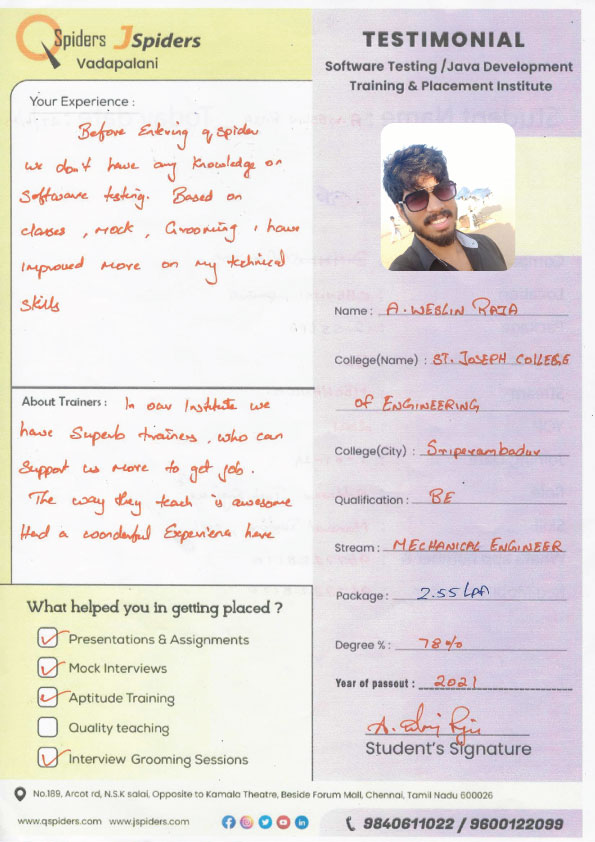 QSpiders JSpiders
Vadapalani
Your Experience :
Before Entering qspider
we don't have any knowledge on
Software testing. Based on
classes, mock, Grooming i have
improved more on my technical
skills
About Trainers : In our Institute we
have Superb trainers, who can
Support us more to get job.
The way they teach is awesome
Had a woonderful Experience here
What helped you in getting placed ?
Presentations & Assignments
Mock Interviews
Aptitude Training
Quality teaching
Interview Grooming Sessions
TESTIMONIAL
Software Testing /Java Development
Training & Placement Institute
Name : A. WEBLIN RAJA
College(Name) : ST. JOSEPH COLLEGE
OF ENGINEERING
College(City) : Sriperambadur
Qualification : BE
Stream : MECHANICAL ENGINEER
Package : 2.55 LPA
Degree % : 78%
Year of passout : 2021
Student's Signature
No.189, Arcot rd, N.S.K salai, Opposite to Kamala Theatre, Beside Forum Mall, Chennai, Tamil Nadu 600026
www.qspiders.com www.jspiders.com
9840611022 / 9600122099